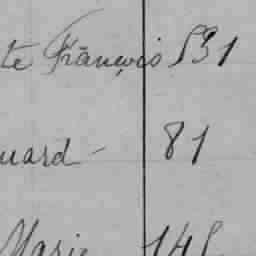 te François 531
uard - 81
Marie 145